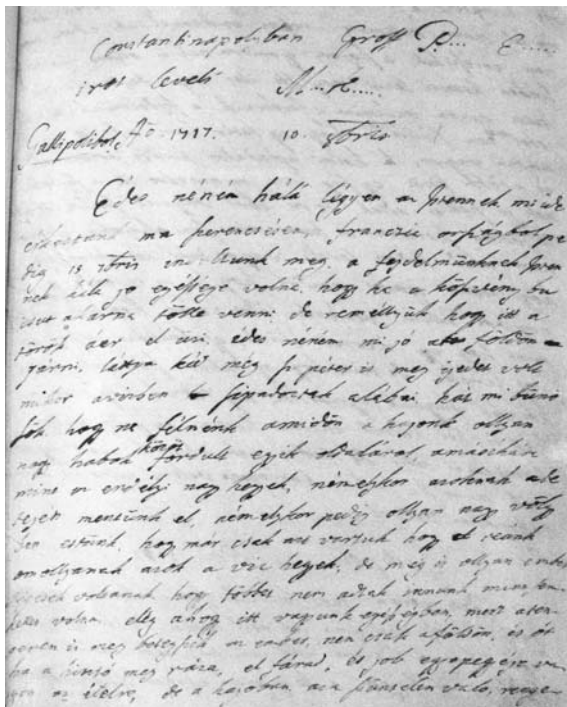 Constantinapolyban Groff P... E.....
irot levelei M...K.....
Gallipolibol, Ao 1717. 10. 8bris
Édes néném hálá légyen az Istennek mi ide
érkeztünk ma szerencsésen, francia országbol pe
dig 15. 7bris indultunk meg. a fejedelmünknek Iste
nek jo egésége volna, hogy ha a köszvény bu
csut akarna tölle venni, de reméllyük hogy itt a
török áer el üzi, édes néném mi jo a földön
járni, láttya kéd még sz péter is meg ijedet volt
mikor a vizben sippadoztak a lábai, hát mi bünö
sök hogy ne félnénk amidön a hajonk ollyan
nagy habok között fordult egyik oldaláról a másikára
mint az erdélyi nagy hegyek, némelykor azoknak a te
tején mentünk el, némelykor pedig ollyan nagy völgy
ben estünk, hogy már csak azt vártuk hogy reánk
omollyanak azok a viz hegyek, de még is ollyan embe
ségesek voltanak hogy többet nem adtak innunk, mint sem
kellet volna. elég a hogy itt vagyunk egésségben, mert a ten
geren is meg betegszik az ember, nem csak a földön, és ot
ha a hinto meg rázza, el fárad, és job egyepegésse va
gyon az ételre, de a hajoban az a szüntelen valo,